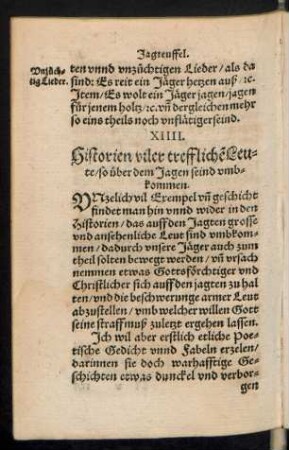 Jagteuffel.
Vnzüch-
tig Lieder.
ten vnnd vnzüchtigen Lieder / als da
sind: Es reit ein Jäger hetzen auß / ꝛc.
Item / Es wolt ein Jäger jagen / jagen
für jenem holtz / ꝛc. vñ dergleichen mehr
so eins theils noch vnflätiger seind.
XIIII.
Historien viler trefflichẽ Leu-
te / so über dem Jagen seind vmb-
kommen.
VNzelich vil Exempel vñ geschicht
findet man hin vnnd wider in den
Historien / das auff den Jagten grosse
vnd ansehenliche Leut sind vmbkom-
men / dadurch vnsere Jäger auch zum
theil solten bewegt werden / vñ vrsach
nemmen etwas Gottsförchtiger vnd
Christlicher sich auff den jagten zu hal
ten / vnd die beschwerunge armer Leut
abzustellen / vmb welcher willen Gott
seine straff muß zuletzt ergehen lassen.
Ich wil aber erstlich etliche Poe-
tische Gedicht vnnd Fabeln erzelen /
darinnen sie doch warhafftige Ge-
schichten etwas dunckel vnd verbor-
gen